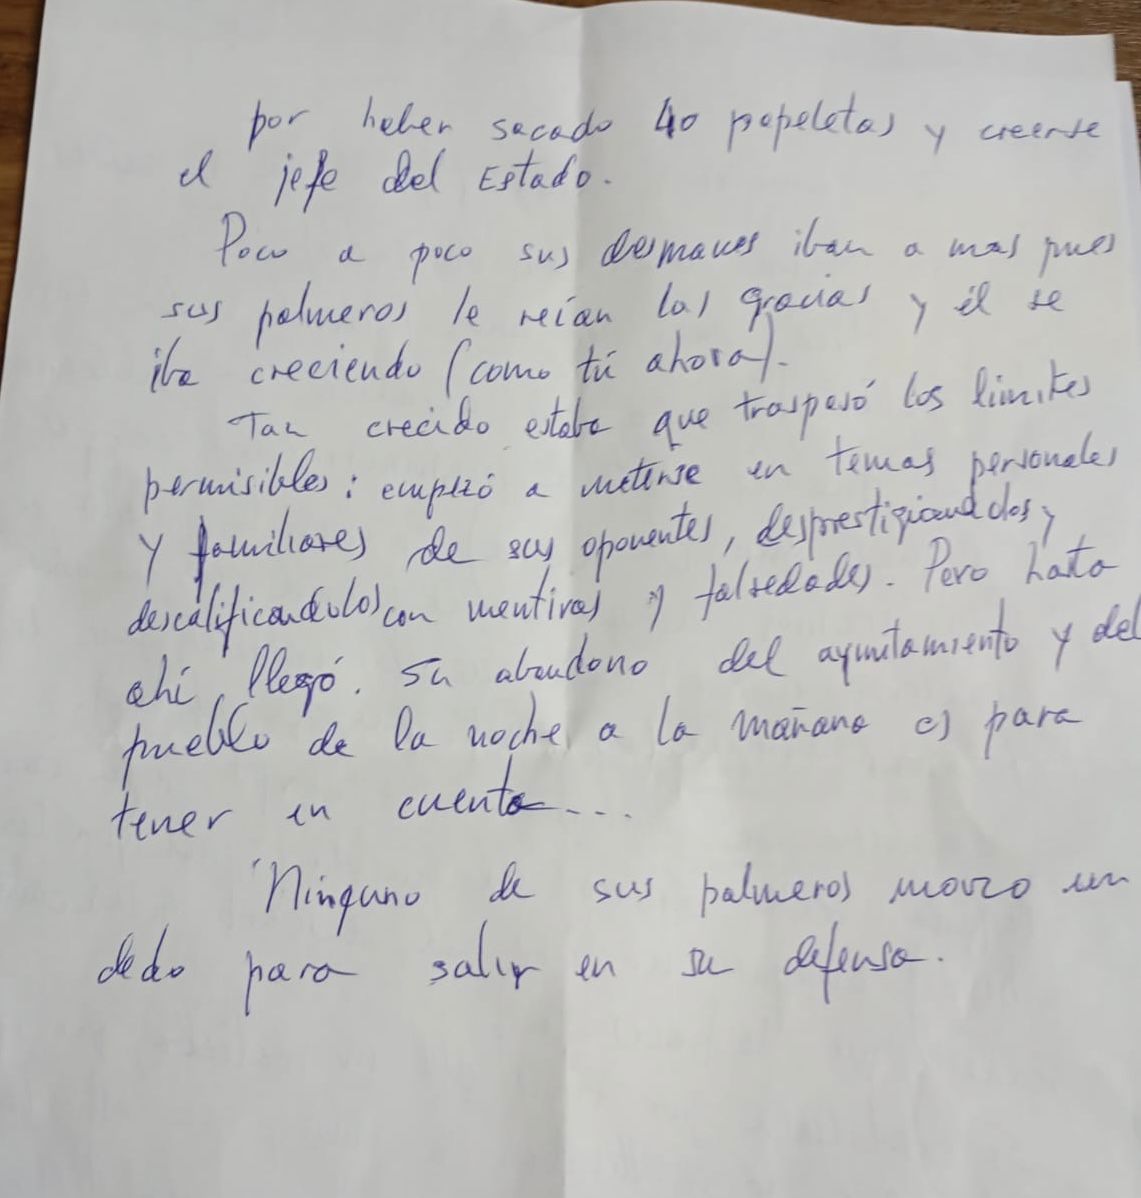 por haber sacado 40 papeletas y creerse
el jefe del Estado.
Poco a poco sus desmanes iban a mas pues
sus palmeros le reían las gracias y él se
iba creciendo (como tú ahora).
Tan crecido estaba que traspasó los límites
permisibles: empezó a meterse en temas personales
y familiares de sus oponentes, desprestigiandolos y
descalificandolos con mentiras y falsedades. Pero hasta
ahí llegó. Su abandono del ayuntamiento y del
pueblo de la noche a la mañana es para
tener en cuenta...
Ninguno de sus palmeros movio un
dedo para salir en su defensa.